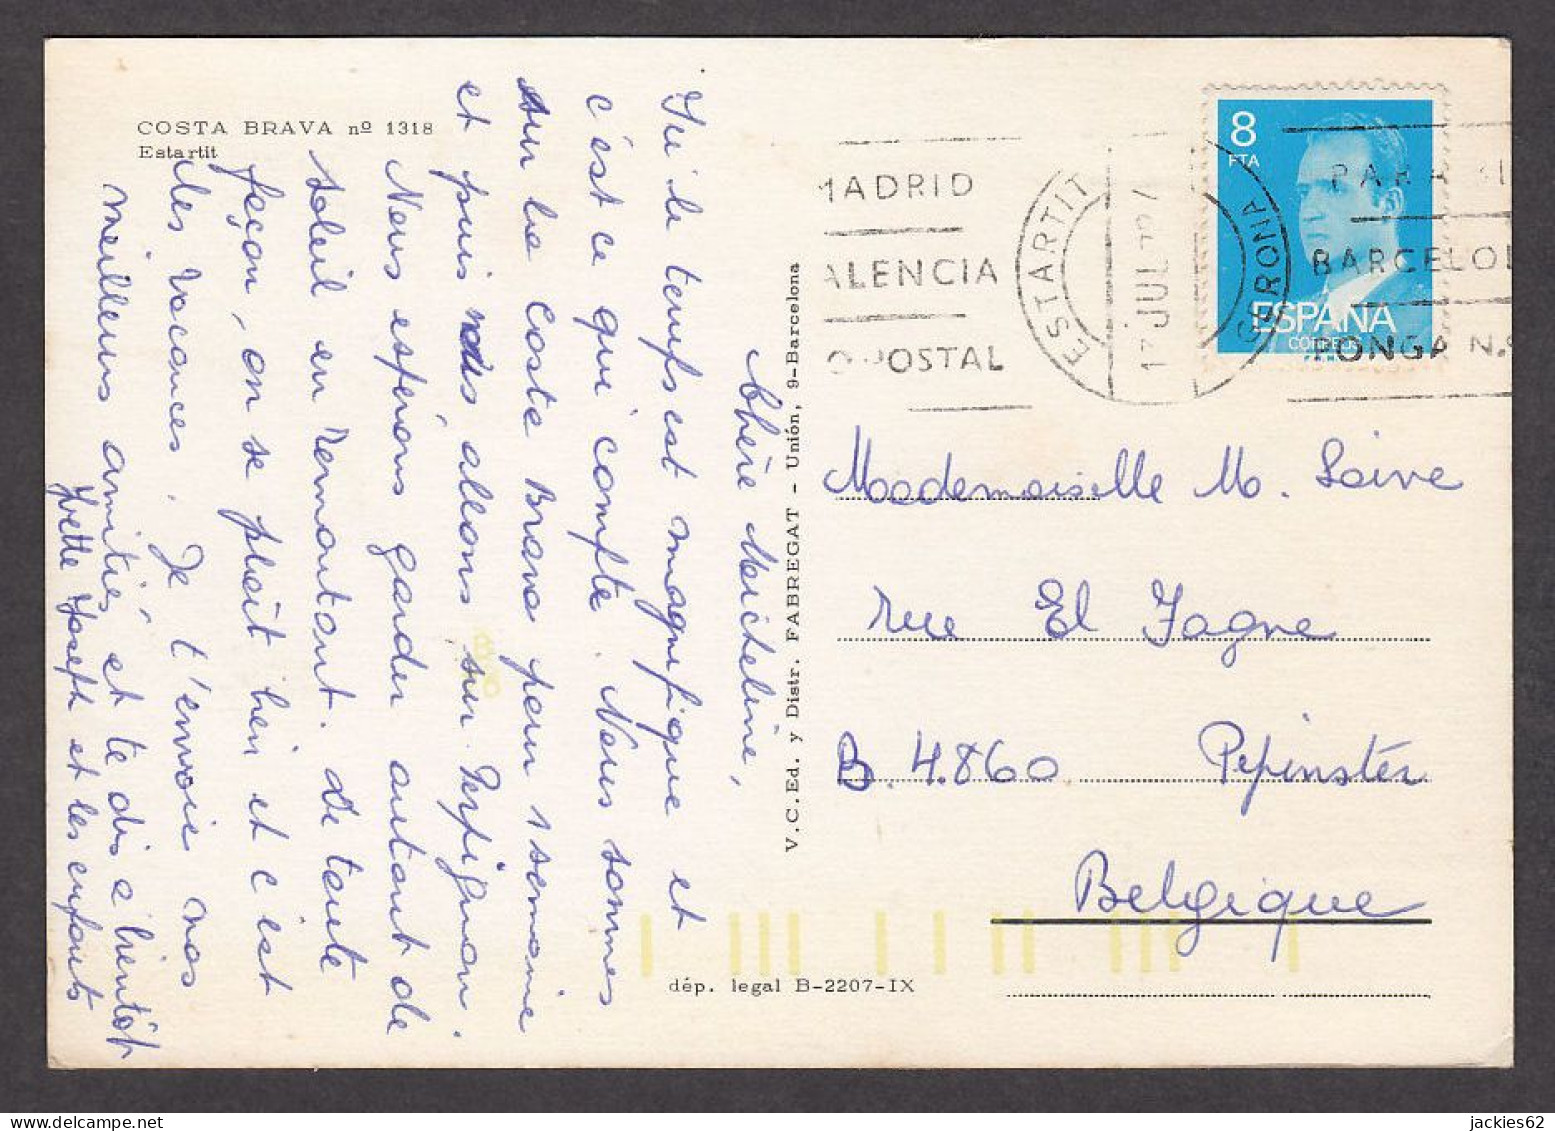 COSTA BRAVA nº 1318
Estartit
Chère Micheline,
Ici le temps est magnifique et
c'est ce qui compte. Nous sommes
sur la Costa Brava pour 1 semaine
et puis nous allons sur Perpignan.
Nous espérons garder autant de
soleil en remontant. De toute
façon, on se plait bien et c'est
les vacances. Je t'envoie nos
meilleurs amitiés et te dis à bientôt
Yvette Joseph et les enfants
V.C.Ed. y Distr. FABREGAT - Unión, 9-Barcelona
dép. legal B-2207-IX
MADRID
ALENCIA
O POSTAL
ESTARTIT
GERONA
17 JUL 79
8
PTA
ESPAÑA
CORREOS
PARA
BARCELO
PONGA N.
Mademoiselle M. Loive
rue El Fagne
B. 4.860 Pepinster
Belgique
jackies62